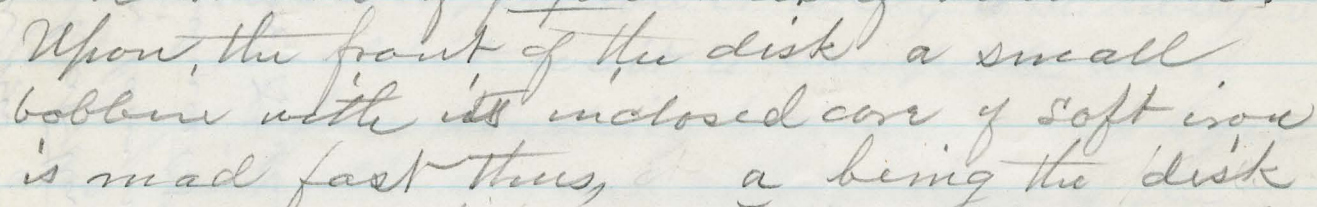 Upon, the front of the disk a small
bobbine with its inclosed core of soft iron
is mad fast thus, a being the disk